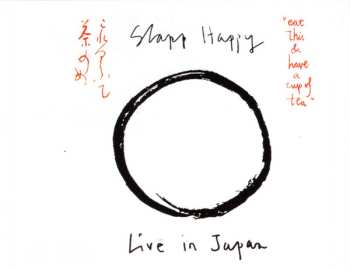 茶のめ
Slapp Happy
"eat
this
&
have
a
cup of
tea"
Live in Japan